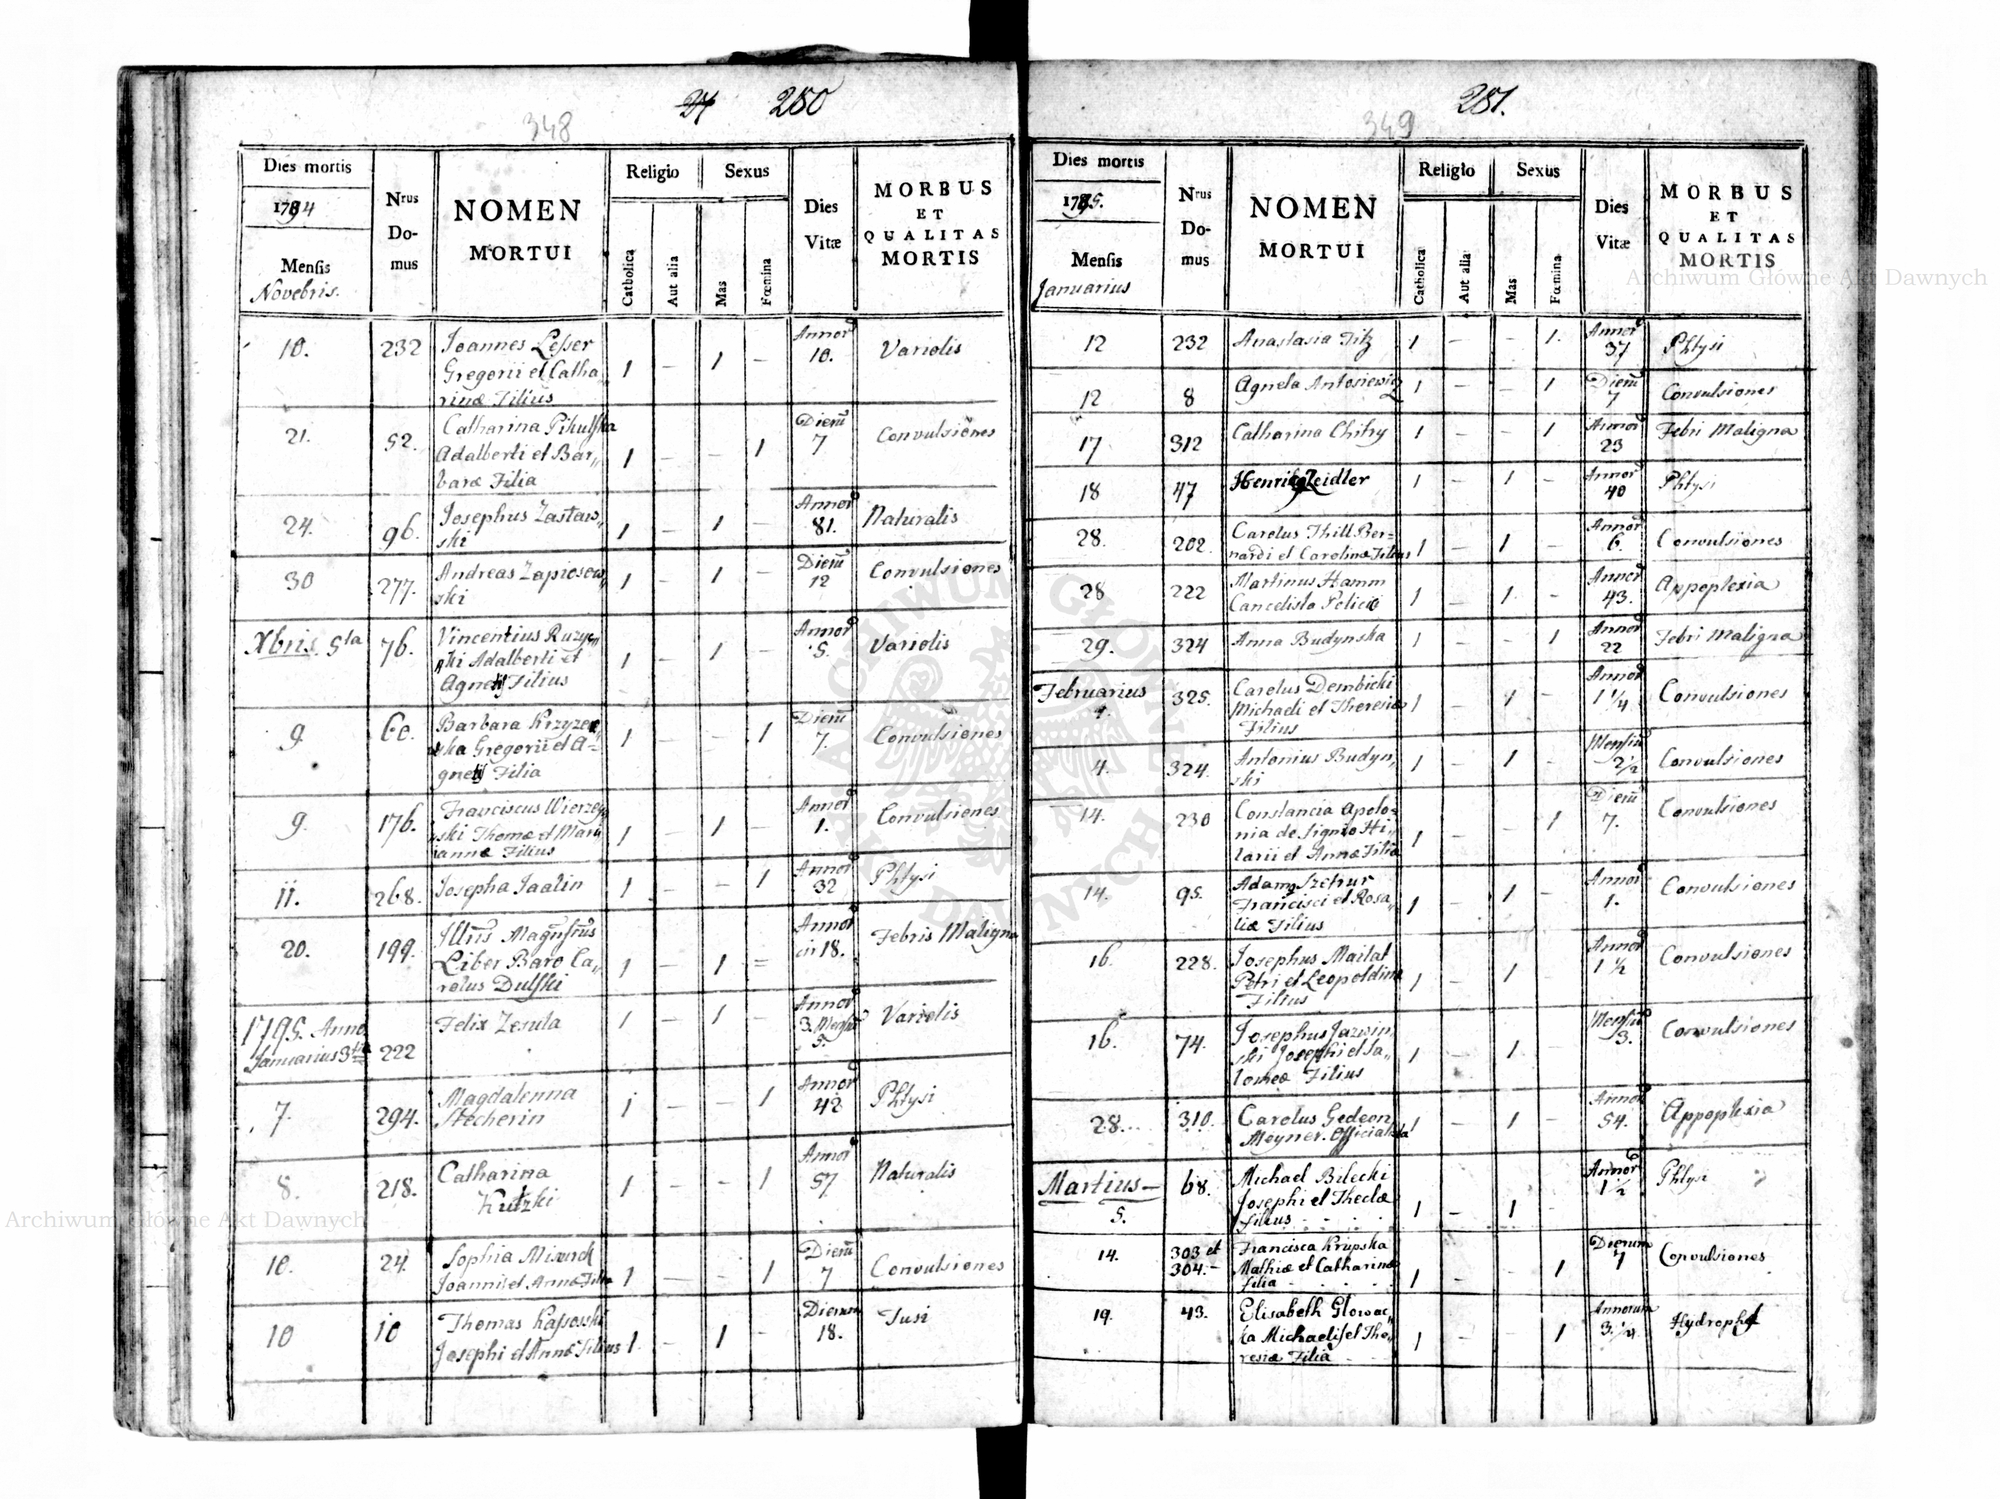 24 280
348
Dies mortis
1794
Mensis
Novebris.
Nrus Do-mus
NOMEN
MORTUI
Religio
Catholica
Aut alia
Sexus
Mas
Fœmina
Dies
Vitæ
MORBUS
ET
QUALITAS
MORTIS
10. 232 Joannes Lesser Annor 10. Variolis
Gregorii et Catha„ 1 – 1 –
rinæ Filius
21. 52. Catharina Pikulska Dieru 7 Convulsiones
Adalberti et Bar„ 1 – – 1
baræ Filia
24. 96. Josephus Zastaw„ 1 – 1 – Annor 81. Naturalis
ski
30 277. Andreas Zapiosow„ 1 – 1 – Dieru 12 Convulsiones
ski
Xbris 5ta 76. Vincentius Ruzyc„ Annor 5. Variolis
ski Adalberti et 1 – 1 –
Agnetis Filius
9. 60. Barbara Krzyzew„ 1 – – 1 Dieru 7. Convulsiones
ska Gregorii et A=
gnetis Filia
9. 176. Franciscus Wierzey„ Annor 1. Convulsiones
ski Thomæ et Mari„ 1 – 1 –
annæ Filius
11. 268. Josepha Jaalin 1 – – 1 Annor 32 Phtysi
20. 199. Illris Magnificus Annor in 18. Febris Maligna
Liber Baro Ca„ 1 – 1 =
rolus Dulski
1795. Anno Felix Zesula 1 – 1 – Annor 3 Mensiu 5. Variolis
Januarius 3tia 222
7. 294. Magdalenna 1 – – 1 Annor 42 Phtysi
Stecherin
8. 218. Catharina 1 – – 1 Annor 57 Naturalis
Kutzki
10. 24. Sophia Dieru 7 Convulsiones
Joannis et Annæ Filia 1 – – 1
10 10 Thomas Kassowski Dierum 18. Tusi
Josephi et Annæ Filius 1. – 1 –
281.
349
Dies mortis
1795.
Mensis
Januarius
Nrus Do-mus
NOMEN
MORTUI
Religio
Catholica
Aut alia
Sexus
Mas
Fœmina
Dies
Vitæ
MORBUS
ET
QUALITAS
MORTIS
12 232 Anastasia Titz 1 – – 1. Annor 37 Phtysi
12 8 Agneta Antosiewicz 1 – – 1 Dieru 7 Convulsiones
17 312 Catharina Chitry 1 – – 1 Annor 23 Febri Maligna
18 47 Henrik Zeidler 1 – 1 – Annor 40 Phtysi
28. 202. Carolus Thill Ber= Annor 6. Convulsiones
nardi et Carolinæ Filius 1 – 1 –
28 222 Martinus Hamm Annor 43. Appoplexia
Cancelista Policiæ 1 – 1. –
29. 324 Anna Budynska 1 – – 1 Annor 22 Febri Maligna
Februarius 325. Carolus Dembicki Annor 1 1/4 Convulsiones
4. Michaeli et Theresiæ 1 – 1 –
Filius
4. 324. Antonius Budyn„ 1 – 1 – Mensiu 2 1/2 Convulsiones
ski
14. 230 Constancia Apolo= Dieru 7. Convulsiones
nia de Signio Hi„ 1 – – 1
larii et Annæ Filia
14. 95. Adamy Szetrur Annor 1. Convulsiones
Francisci et Rosa„ 1 – 1 –
liæ Filius
16. 228. Josephus Mailat Annor 1 1/2 Convulsiones
Petri et Leopoldinæ 1 – 1 –
Filius
16. 74. Josephus Jazwin„ Mensiu 3. Convulsiones
ski Josephi et Sa„ 1 – 1. –
lomeæ Filius
28. 310. Carolus Gedeon Annor 54. Appoplexia
Meyner. Officialista 1 – 1 –
Martius– 68. Michael Bilecki Annor 1 1/2 Phtysi
5. Josephi et Theclæ 1 – 1
Filius
14. 303 et 304.– Francisca Krupska Dierum 7 Convulsiones
Mathiæ et Catharinæ 1 – – 1
Filia
19. 43. Elisabeth Glowac„ Annorum 3. 1/4
ka Michaelis et The„ 1 – – 1
resiæ Filia
Archiwum Główne Akt Dawnych
Archiwum Główne Akt Dawnych
ARCHIWUM GŁÓWNE AKT DAWNYCH